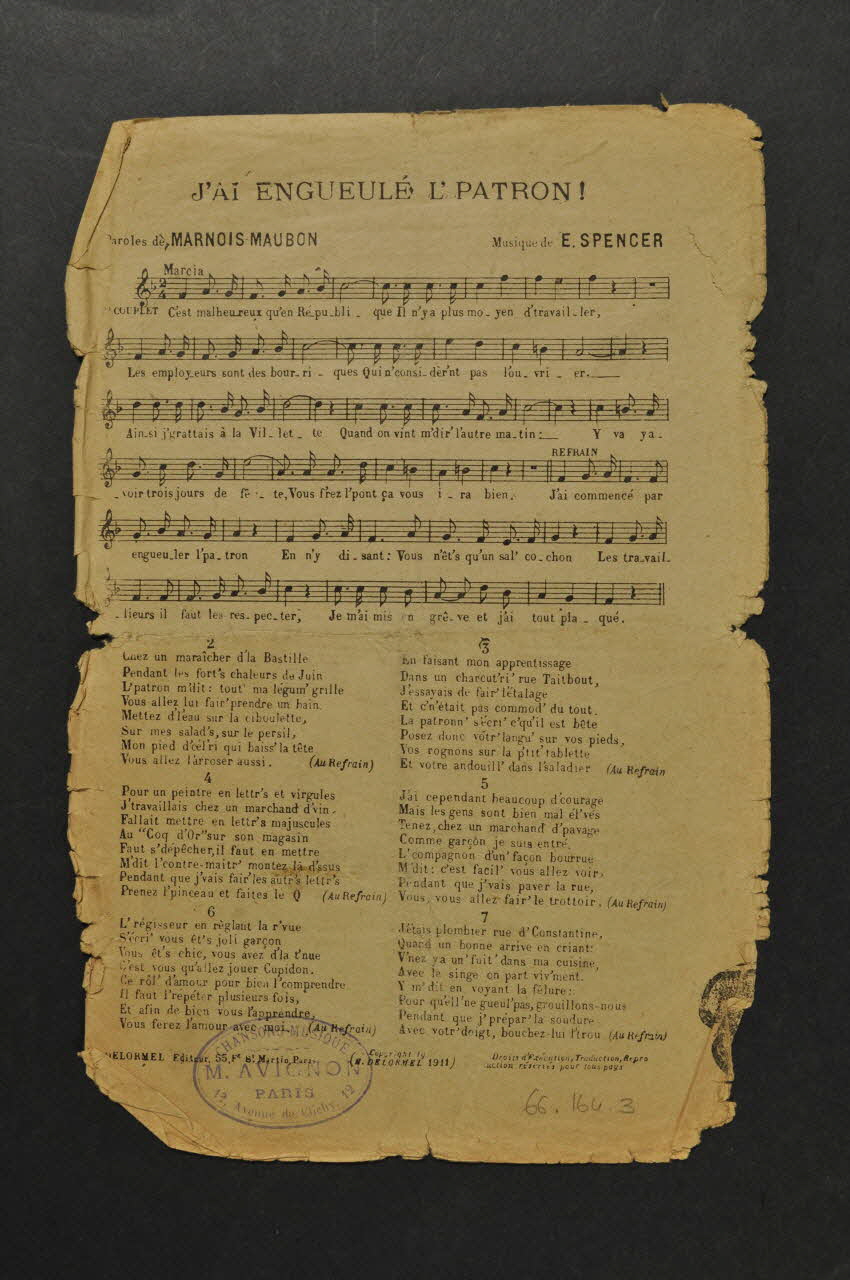 J'AI ENGUEULÉ L'PATRON!
Paroles de MARNOIS-MAUBON
Musique de E. SPENCER
Marcia
COUPLET C'est malheu_reux qu'en Ré_pu_bli _ que Il n'y a plus mo_yen d'travail_ler,
Les employ_eurs sont des bour_ri _ ques Qui n'consi_dèr'nt pas l'ou_vri _ er.
Ain_si j'grattais à la Vil_let_te Quand on vint m'dir' l'autre ma_tin: Y va ya_
_voir trois jours de fê _ te, Vous f'rez l'pont ça vous i_ra bien.
REFRAIN
J'ai commencé par
engueu_ler l'pa_tron En n'y di_sant: Vous n'êt's qu'un sal' co_chon Les tra_vail_
_lieurs il faut les res_pec_ter, Je m'ai mis en grê_ve et j'ai tout pla_qué.
2
Chez un maraîcher d'la Bastille
Pendant les fort's chaleurs de Juin
L'patron m'dit: tout' ma légum' grille
Vous allez lui fair' prendre un bain.
Mettez d'l'eau sur la ciboulette,
Sur mes salad's, sur le persil,
Mon pied d'cél'ri qui baiss' la tête
Vous allez l'arroser aussi. (Au Refrain)
3
En faisant mon apprentissage
Dans un charcut'ri' rue Taitbout,
J'essayais de fair' l'étalage
Et c'n'était pas commod' du tout.
La patronn' s'écri' c'qu'il est bête
Posez donc vótr' langu' sur vos pieds,
Vos rognons sur la p'tit' tablette
Et votre andouill' dans l'saladier (Au Refrain
4
Pour un peintre en lettr's et virgules
J'travaillais chez un marchand d'vin.
Fallait mettre en lettr's majuscules
Au "Coq d'Or" sur son magasin
Faut s'dépêcher, il faut en mettre
M'dit l'contre-maitr' montez là d'ssus
Pendant que j'vais fair' les autr's lettr's
Prenez l'pinceau et faites le Q (Au Refrain)
5
J'ai cependant beaucoup d'courage
Mais les gens sont bien mal él'vés
Tenez, chez un marchand d'pavage
Comme garçon je suis entré.
L'compagnon d'un' façon bourrue
M'dit: c'est facil' vous allez voir,
Pendant que j'vais paver la rue,
Vous, vous allez fair' le trottoir. (Au Refrain)
6
L'régisseur en règlant la r'vue
S'écri' vous êt's joli garçon
Vous êt's chic, vous avez d'la t'nue
C'est vous qu'allez jouer Cupidon.
Ce rôl' d'amour pour bien l'comprendre
Il faut l'repéter plusieurs fois,
Et afin de bien vous l'apprendre,
Vous ferez l'amour avec moi. (Au Refrain)
7
J'étais plombier rue d'Constantine,
Quand un bonne arrive en criant:
V'nez ya un' fuit' dans ma cuisine,
Avec le singe on part viv'ment.
Y m'dit en voyant la fêlure:
Pour qu'ell' ne gueul' pas, grouillons-nous
Pendant que j'prépar' la soudure
Avec votr' doigt, bouchez-lui l'trou (Au Refrain)
DELORMEL Editeur, 55, Fg St Martin, Paris
(Copyright by H. DELORMEL 1911)
Droits d'Exécution, Traduction, Repro
duction réservés pour tous pays
CHANSONS-MUSIQUE
M. AVIGNON
PARIS
12, Avenue de Clichy, 12
66.164.3